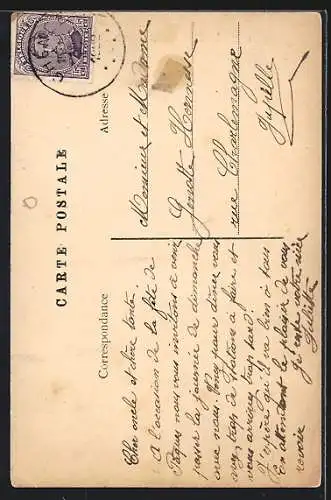 CARTE POSTALE
Correspondance
Adresse
Cher oncle et chère tante.
A l'occasion de la fête de
Pâques nous vous invitons à venir
passer la journée de dimanche
avec nous. Venez pour dîner vous
avez trop de stations à faire et
vous arrivez trop tard.
J'espère qu'il va bien à tous
En attendant le plaisir de vous
revoir
je reste votre nièce
Juliette
Monsieur et Madame
Genotte
rue Charlemagne
Jupille